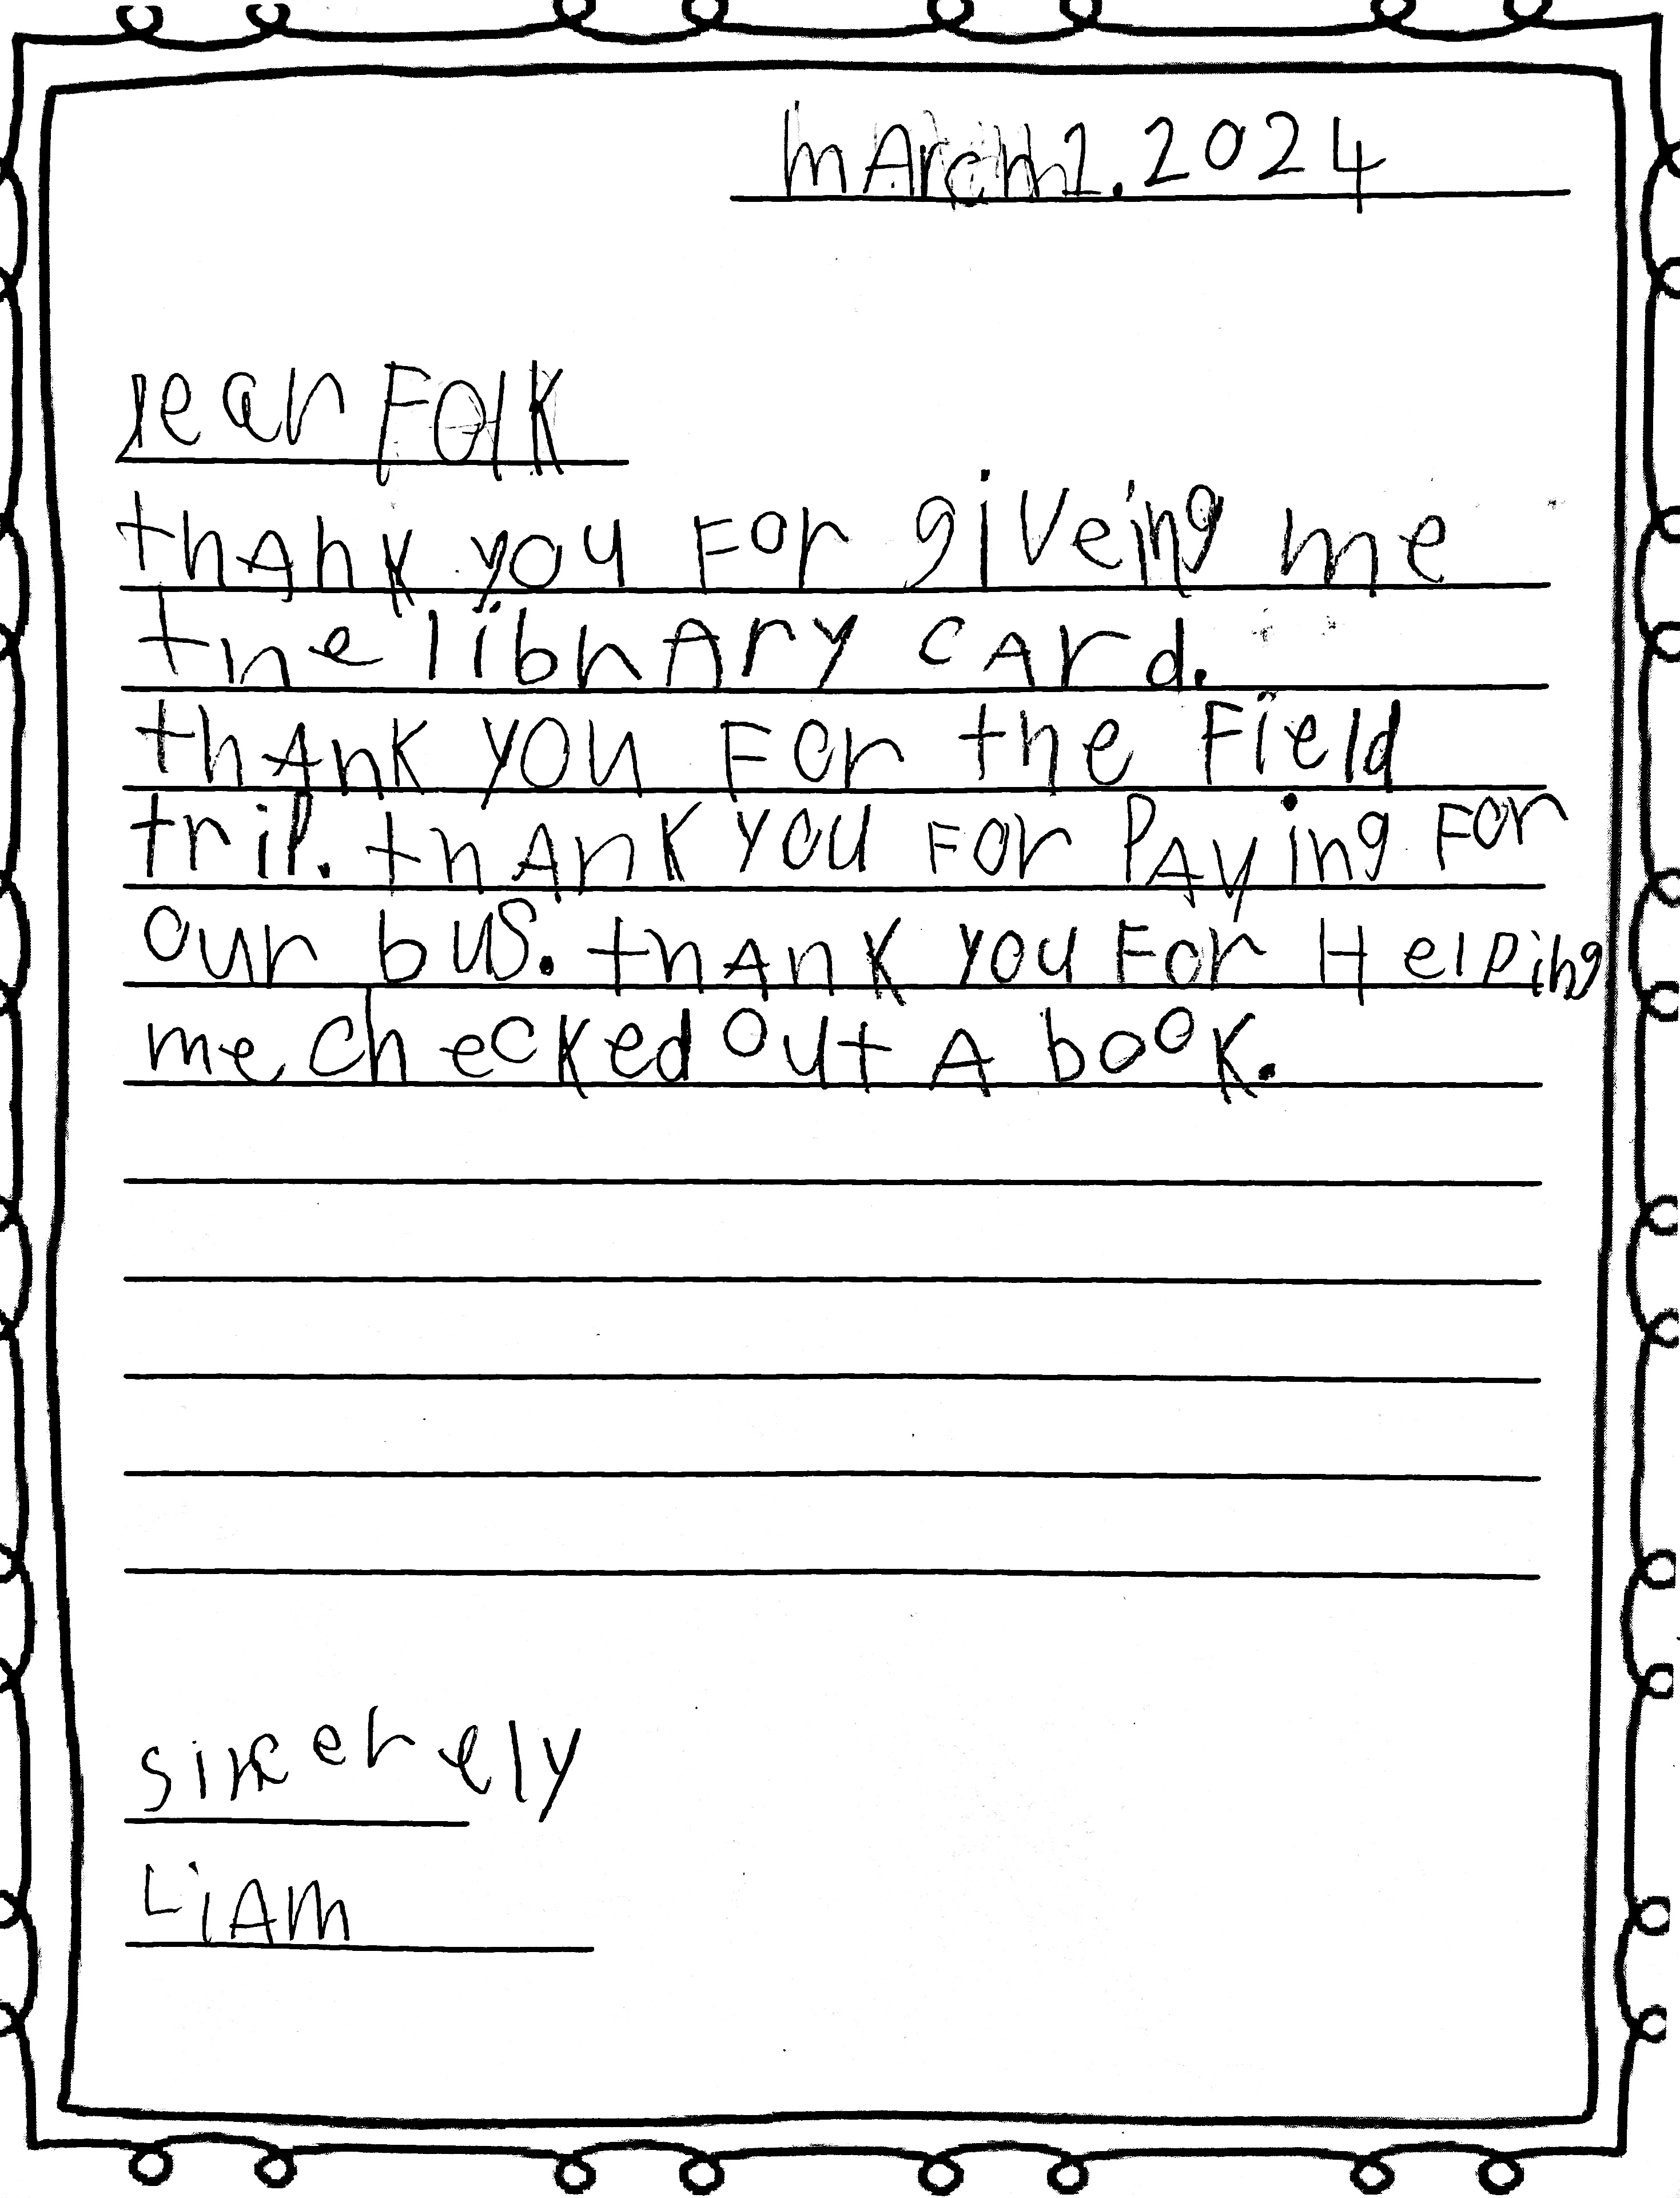 mArch 1. 2024
Dear FOlK
thAnk you For giveing me
the librAry cArd.
thAnK you For the Field
trip. thAnK you For PAying For
our bus. thAnK you For Helping
me checKed out A booK.
sincerely
LiAm